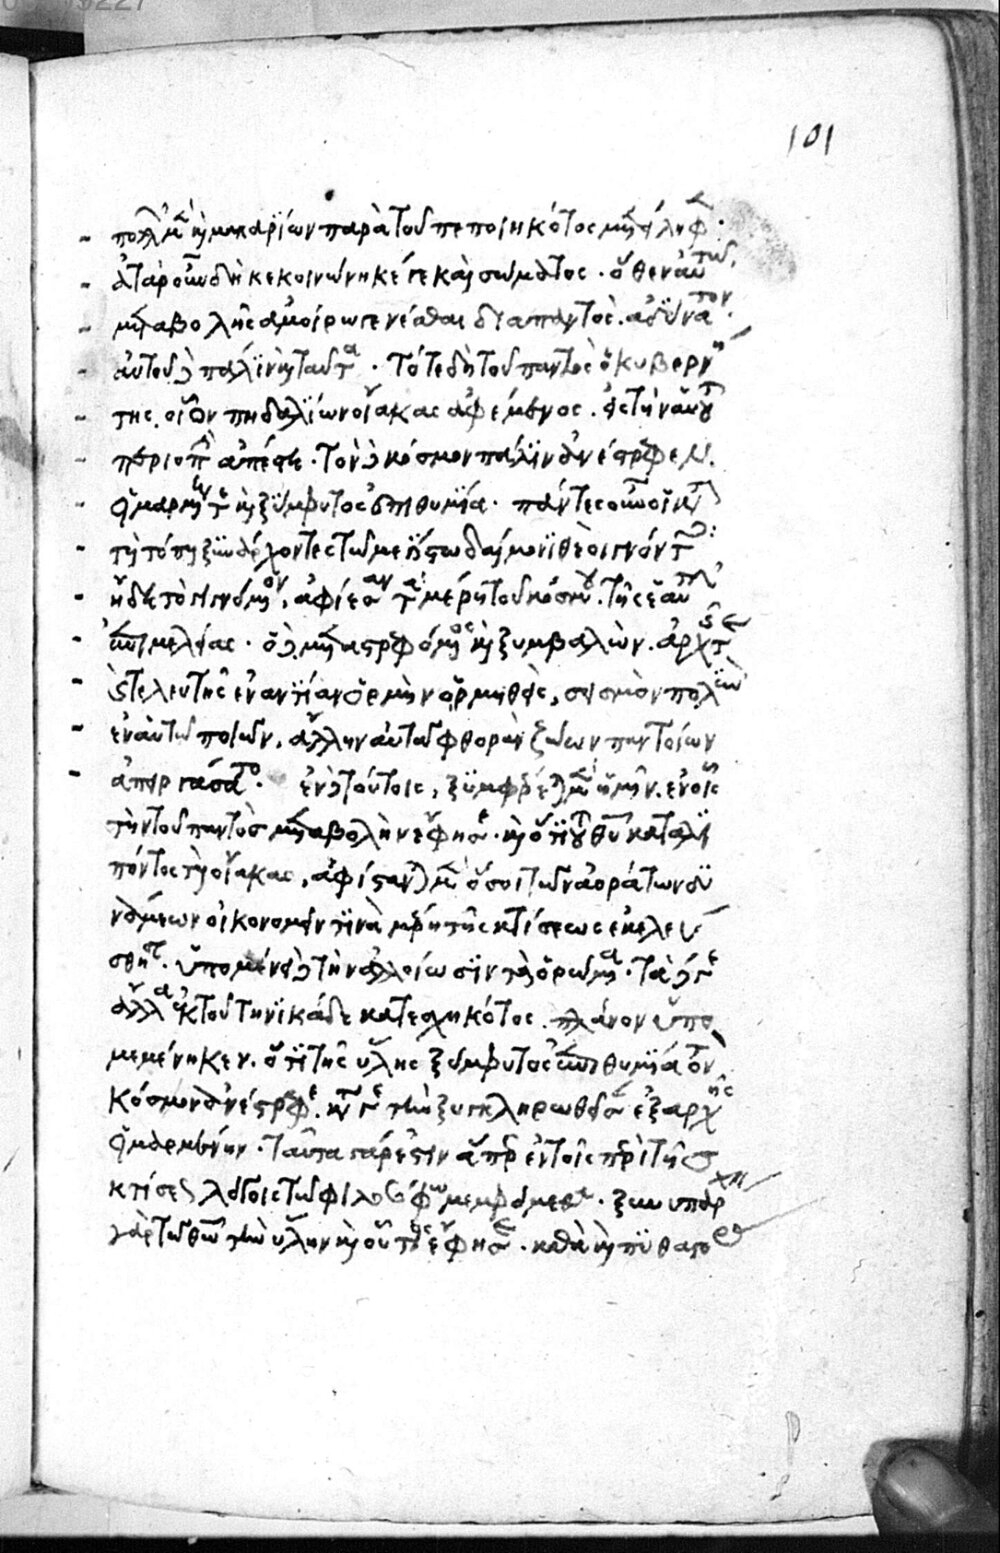 101
πολλῶν μὲν καὶ μακαρίων παρὰ τοῦ πεποιηκότος μετείληφεν.
ἀτὰρ οὖν δὴ κεκοινώνηκέ γε καὶ σώματος. ὅθεν αὐτῷ
μεταβολῆς ἀμοίρῳ γενέσθαι διαπαντὸς. ἀδύνατον.
αὐτοῦ δὲ πάλιν καὶ ταῦτα. Τότε δὴ τοῦ παντὸς ὁ κυβερνή
της. οἷον πηδαλίων οἴακας ἀφέμενος. εἰς τὴν αὑτοῦ
περιοπὴν ἀπέστη. τὸν δὲ κόσμον πάλιν ἀνέστρεφεν.
εἱμαρμένη τε καὶ ξύμφυτος ἐπιθυμία. πάντες οὖν οἱ κατὰ
τὴ τόπῃ ξυνάρχοντες τῷ μεγίστῳ δαίμονι θεοὶ γνόντες
ἤδη τὸ γιγνόμενον, ἀφίεσαν τὰ μέρη τοῦ κόσμου. τῆς ἑαυτῶν
ἐπιμελείας. ὁ δὲ μεταστρεφόμενος καὶ ξυμβαλὼν. ἀρχῆς τε
καὶ τελευτῆς ἐναντίαν ὁρμὴν ὁρμηθεὶς, σεισμὸν πολὺν
ἐν αὑτῷ ποιῶν, ἄλλην αὐτοῦ φθορὰν ζώων παντοίων
ἀπειργάσατο. ἐν δὲ τούτοις, ξυμφέρεται μὲν ἡμῖν. ἐν οἷς
τὴν τοῦ παντὸς μεταβολὴν ἔφησε. καὶ ὅτι τοῦ θεοῦ καταλι
πόντος τὴ οἴακας, ἀφίστανται μὲν ὅσοι τῶν ἀοράτων δυ
νάμεων οἰκονομεῖν τινὰ μέρη τῆς κτίσεως ἐκελεύ
σθησαν. ὑπομένει δὲ τὴν ἀλλοίωσιν τὰ ὁρώμενα. τὰ δέ γε
ἄλλα ἐκ τοῦ τηνικάδε κατεσχηκότος πλάνον ὑπο
μεμένηκεν. ὅτι τῆς ὕλης ξύμφυτος ἐπιθυμία τὸν
κόσμον ἀνέστρεφε. καὶ τήν γε τὴν ξυγκληρωθεῖσαν ἐξ ἀρχῆς
εἱμαρμένην. ταῦτα γάρ ἐστιν ἅπερ ἐν τοῖς περὶ τῆς
κτίσεως λόγοις τῷ φιλοσόφῳ μεμφόμεθα. ξυνυπάρχειν
γὰρ τῷ θεῷ τὴν ὕλην καὶ οὗτος ἔφησε. καθὰ καὶ πυθαγο